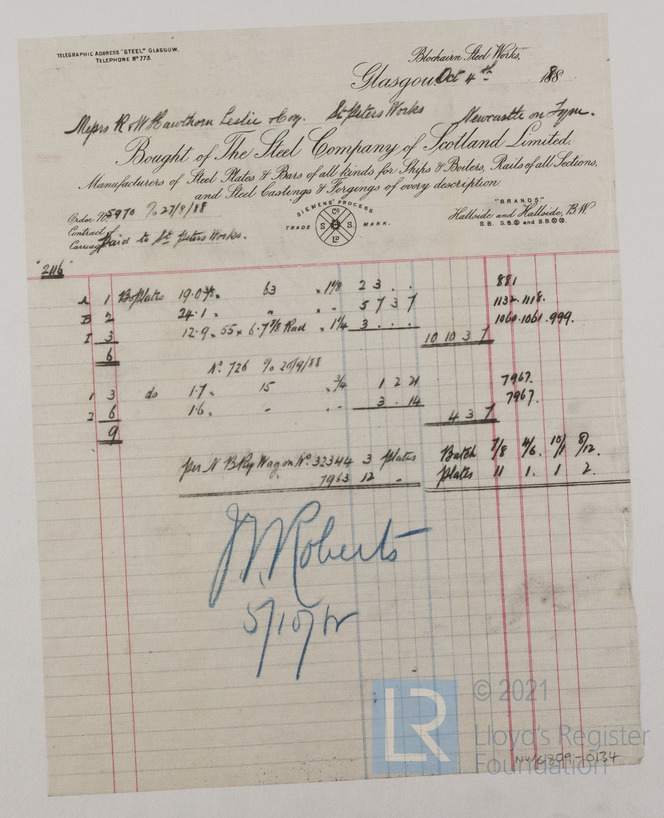 TELEGRAPHIC ADDRESS "STEEL" GLASGOW.
TELEPHONE Nº 773.
Blochairn Steel Works,
Glasgow, Oct 4th 188
Messrs R & W Hawthorn Leslie & Coy. St Peters Works Newcastle on Tyne.
Bought of The Steel Company of Scotland Limited.
Manufacturers of Steel Plates & Bars of all kinds for Ships & Boilers, Rails of all Sections,
and Steel Castings & Forgings of every description
SIEMENS' PROCESS.
TRADE MARK.
Co
S S
LD
"BRANDS"
Hallside and Hallside, B.W
Order No 5970 % 27/9/88
Contract of
Carriage Paid to St Peters Works.
"2116"
A 1 Bo Plates 19.0 63 2 3 . . 881
B 2 24.1 " " 5 7 3 7 1132.1118.
I 3 12.9 55 x 6.7 Rad 1¼ 3 . . . 1060.1061.999.
6 10 10 3 7
Nº 726 % 20/9/88
1 3 do 1.7 15 ¾ 1 2 21 7967.
2 6 1.6 3.14 7967.
9 4 3 7
per N B Ry Wagon Nº 32344 3 plates Batch 7/8 4/6. 10/1 8/12.
7963 12 " plates 11 1. 1 2.
Roberts
5/10/
LR
© 2021
Lloyd's Register
Foundation
-0134